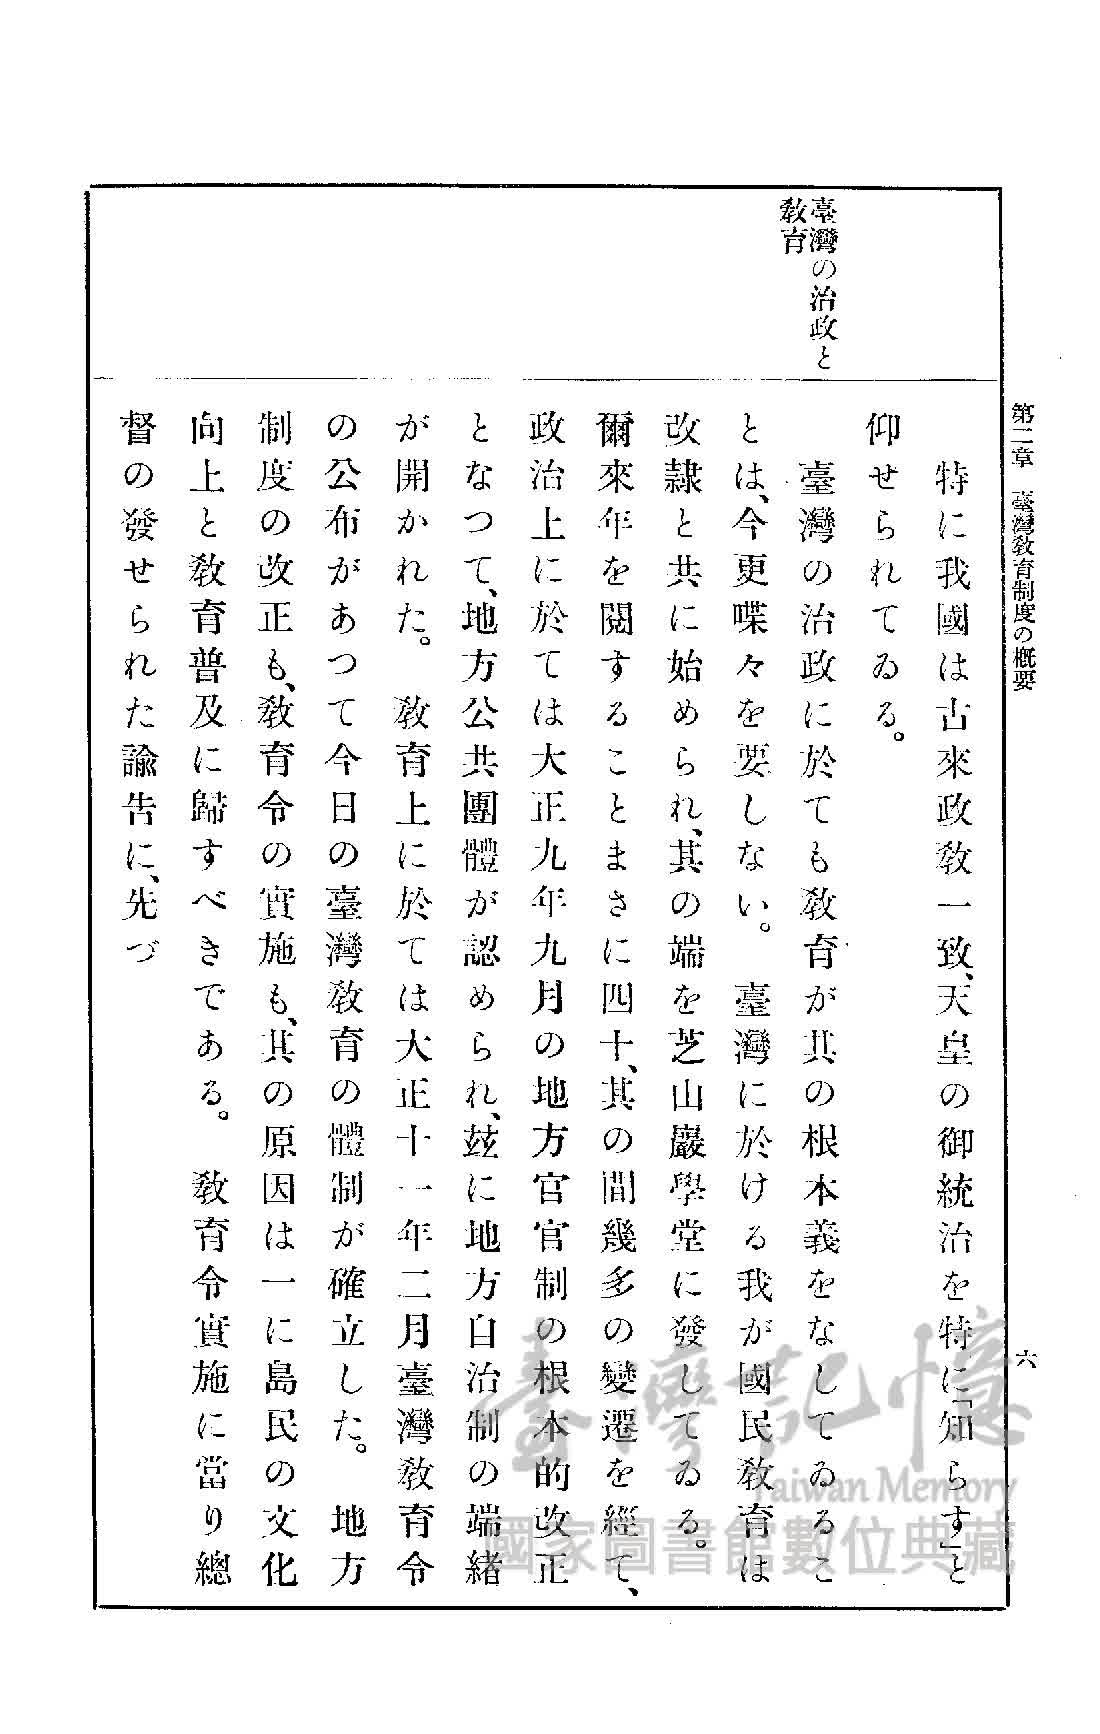 第二章　臺灣敎育制度の概要
六
臺灣の治政と
敎育
特に我國は古來政敎一致、天皇の御統治を特に「知らす」と
仰せられてゐる。
臺灣の治政に於ても敎育が其の根本義をなしてゐるこ
とは、今更喋々を要しない。　臺灣に於ける我が國民敎育は
改隷と共に始められ、其の端を芝山巖學堂に發してゐる。
爾來年を閱することまさに四十、其の間幾多の變遷を經て、
政治上に於ては大正九年九月の地方官官制の根本的改正
となつて、地方公共團體が認められ、玆に地方自治制の端緖
が開かれた。　敎育上に於ては大正十一年二月臺灣敎育令
の公布があつて今日の臺灣敎育の體制が確立した。　地方
制度の改正も、敎育令の實施も、其の原因は一に島民の文化
向上と敎育普及に歸すべきである。　敎育令實施に當り總
督の發せられた諭告に、先づ
臺灣記憶
Taiwan Memory
國家圖書館數位典藏